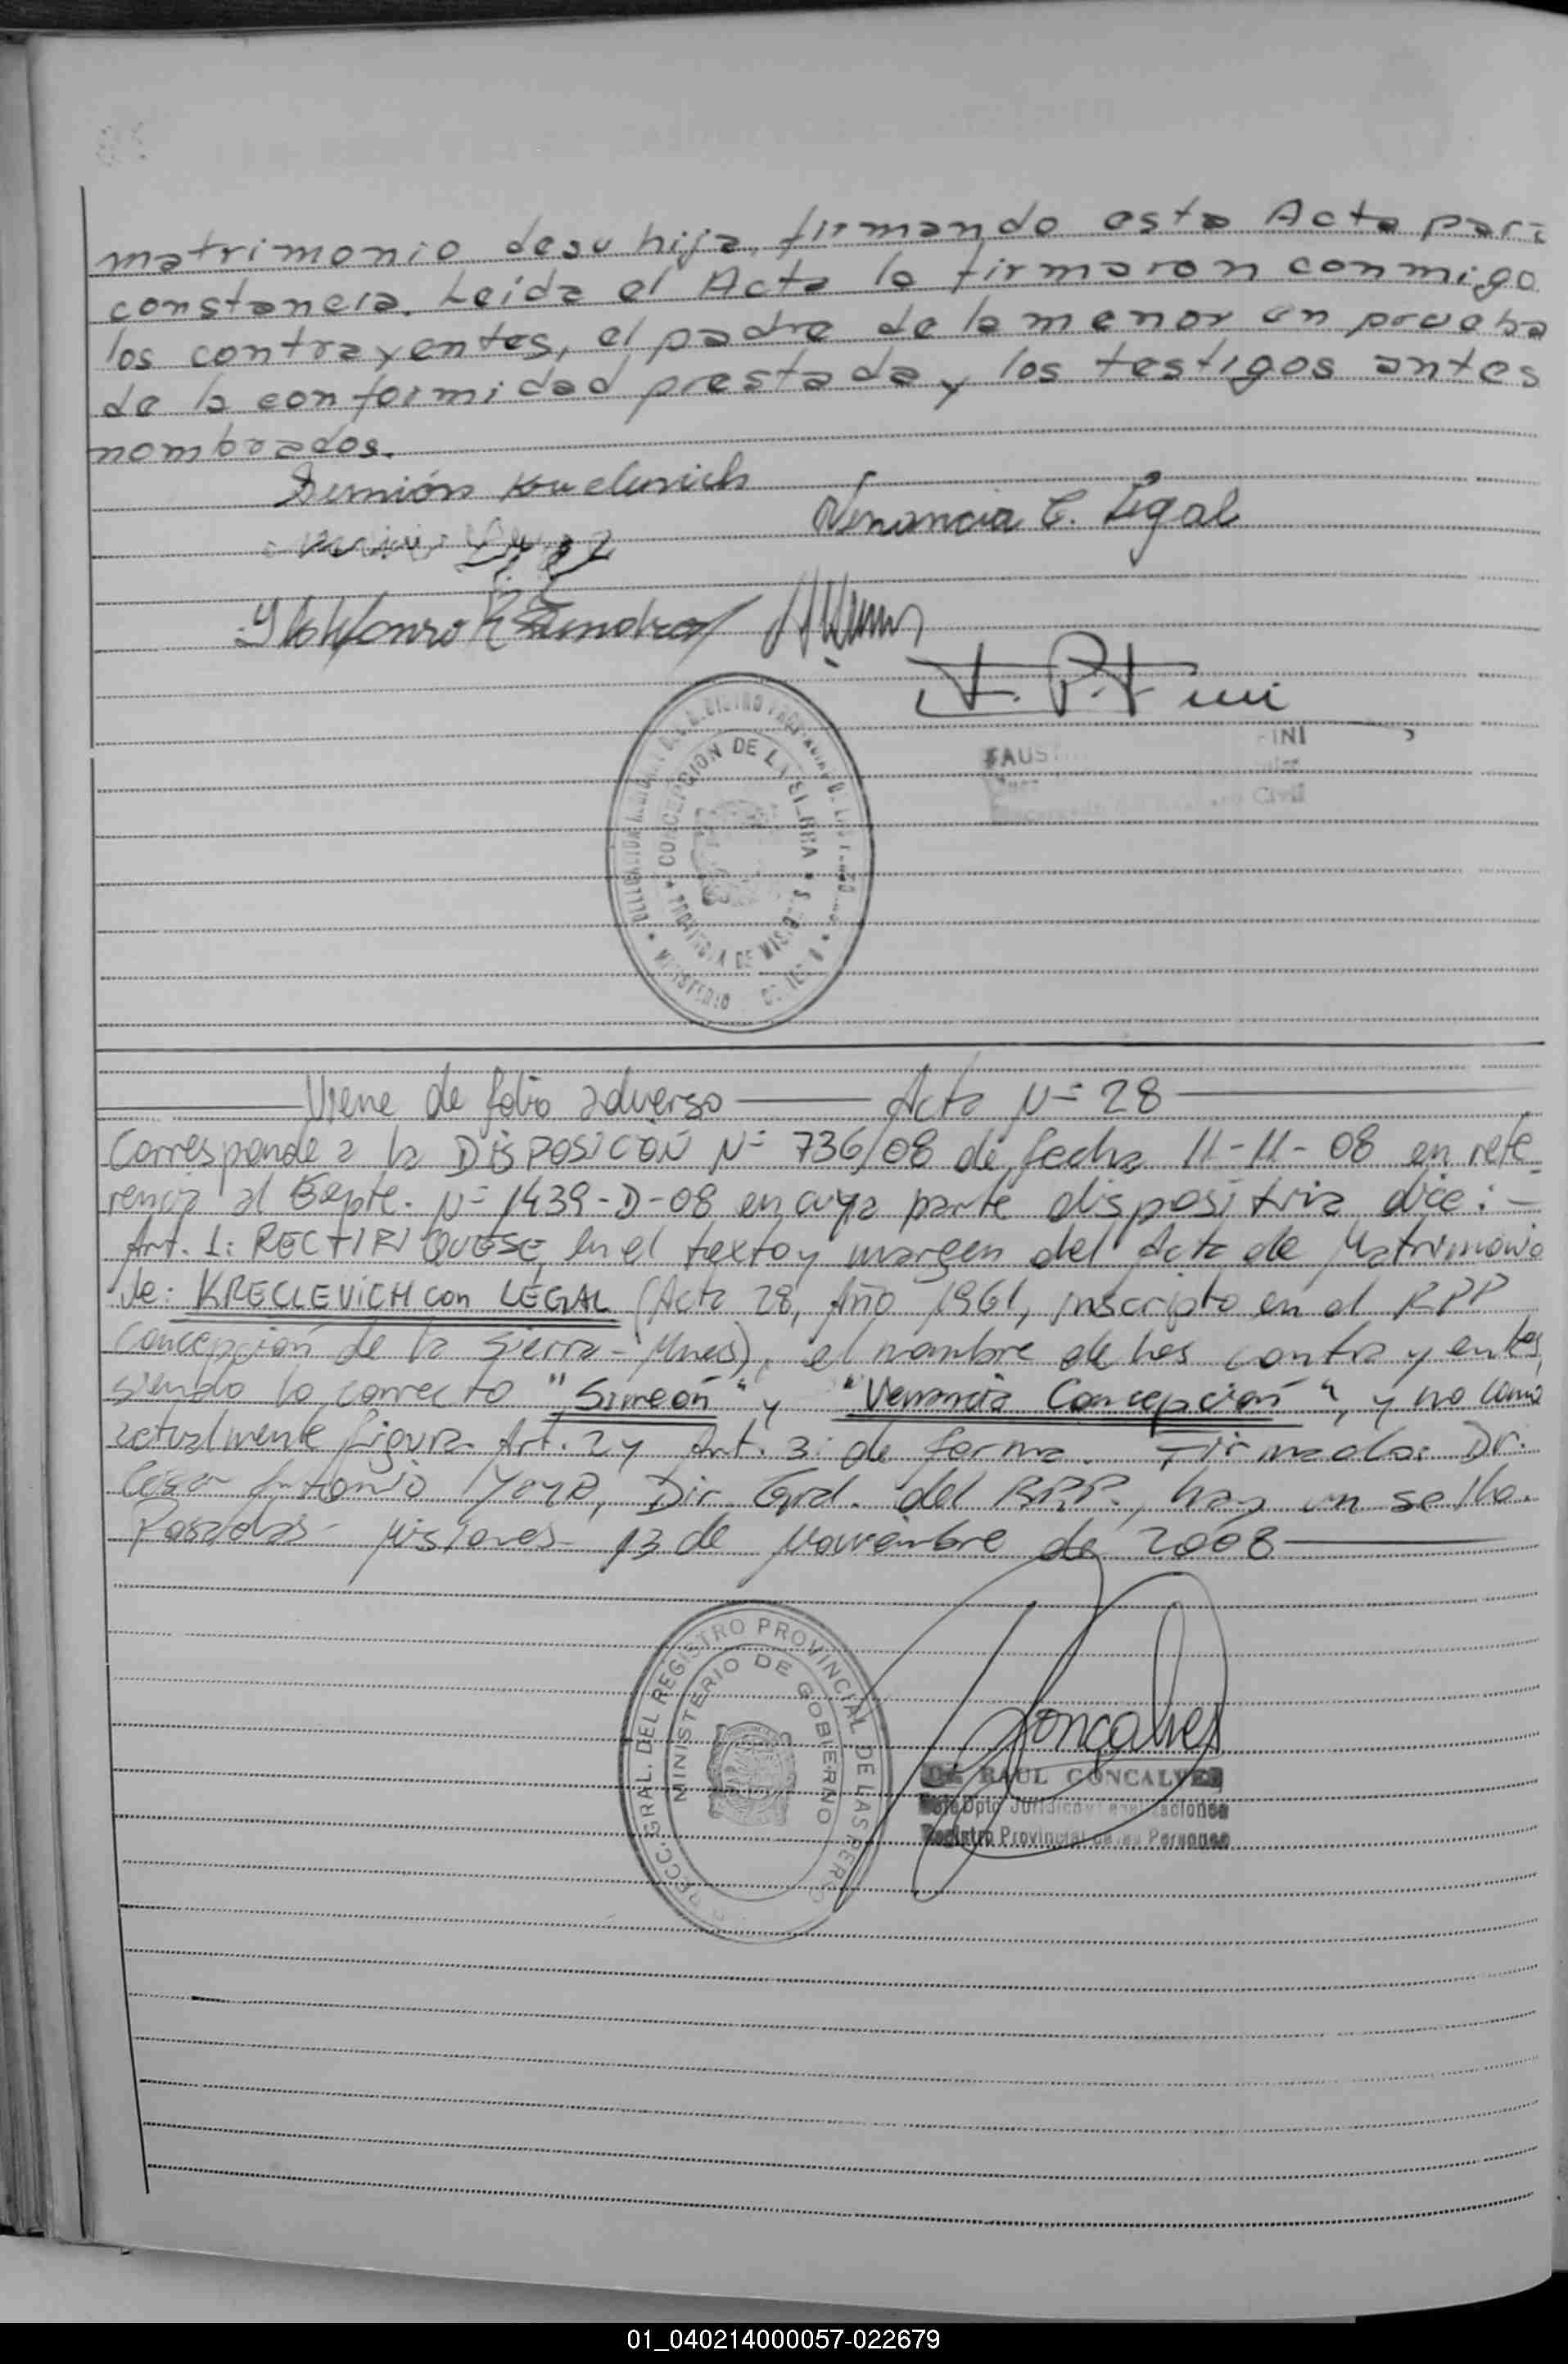 matrimonio desu hija, firmando esta Acta para
constancia. Leida el Acta la firmaron conmigo
los contrayentes, el padre de la menor en prueba
de la conformidad prestada y los testigos antes
nombrados.
Venancia C. Legal
FAUS INI
Civil
CONCEPCION DE LA SIERRA
PROVINCIA DE MISIONES
MINISTERIO
Viene de folio adverso Acta Nº 28
Corresponde a la DISPOSICON Nº 736/08 de fecha 11-11-08 en refe-
rencia al Expte. Nº 1439-D-08 en cuya parte dispositiva dice:-
Art. 1: RECTIFIQUESE, en el texto y margen del Acta de Matrimonio
de: KRECLEVICH con LEGAL (Acta 28, Año 1961, inscripto en el RPP
Concepción de la Sierra - Mnes), el nombre de los contrayentes,
siendo lo correcto "Simeón" y "Venancia Concepción", y no como
actualmente figura. Art. 2 y Art. 3: de forma. Firmado: Dr.
Cesar Antonio Dir. Gral. del RPP., hay un sello.
Posadas - Misiones - 13 de Noviembre de 2008
GRAL. DEL REGISTRO PROVINCIAL DE LAS PERSO
MINISTERIO DE GOBIERNO
Gonçalves
RAUL GONCALVES
Dpto Juridico
Registro Provincial de las Personas
01_040214000057-022679